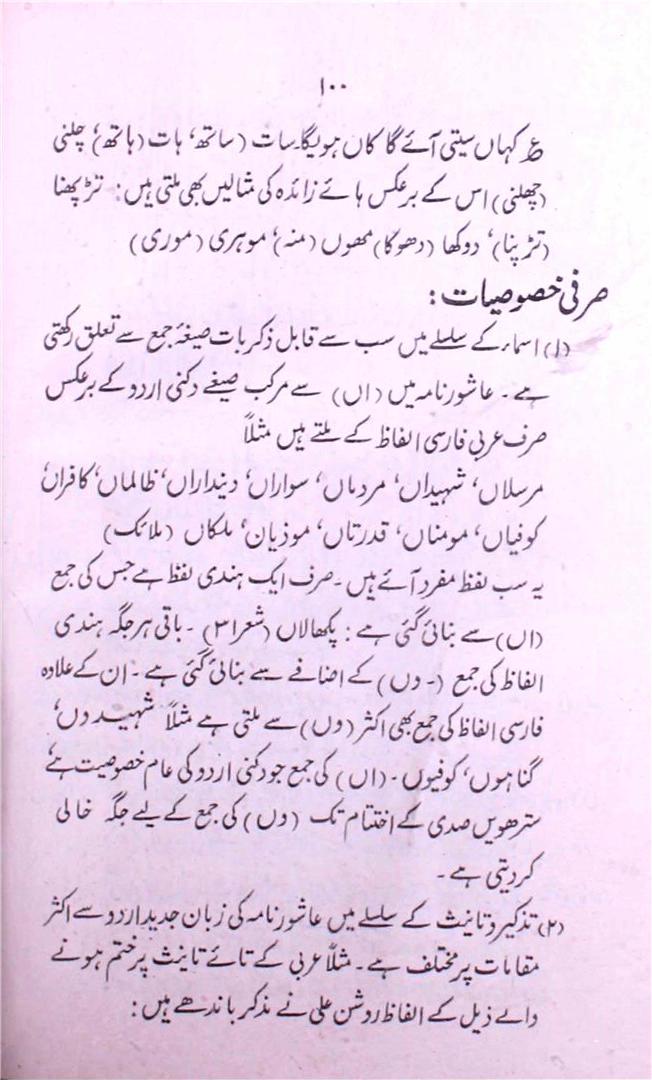 ۱۰۰
ع کہاں سیتی آئے گا کاں ہویگا۔ سات (ساتھ، ہات (ہاتھ) چلنی
(چھلنی) اس کے برعکس ہائے زائدہ کی مثالیں بھی ملتی ہیں: تڑپھنا
(تڑپنا)، دوکھا (دھوکا) مھوں (منہ، موہری (موری)
صرفی خصوصیات:
(۱) اسماء کے سلسلے میں سب سے قابل ذکر بات صیغۂ جمع سے تعلق رکھتی
ہے۔ عاشور نامہ میں (اں) سے مرکب صیغے دکنی اردو کے برعکس
صرف عربی فارسی الفاظ کے ملتے ہیں مثلاً
مرسلاں، شہیداں، مرداں، سواراں، دینداراں، ظالماں، کافراں،
کوفیاں، مومناں، قدرتاں، موذیان، ملکاں (ملائک)
یہ سب لفظ مفرد آئے ہیں۔ صرف ایک ہندی لفظ ہے جس کی جمع
(اں) سے بنائی گئی ہے: پکھالاں (شعر ۳۱)۔ باقی ہر جگہ ہندی
الفاظ کی جمع (۔وں) کے اضافے سے بنائی گئی ہے۔ ان کے علاوہ
فارسی الفاظ کی جمع بھی اکثر (وں) سے ملتی ہے مثلاً شہیدوں،
گناہوں، کوفیوں۔ (اں) کی جمع جو دکنی اردو کی عام خصوصیت ہے،
سترھویں صدی کے اختتام تک (وں) کی جمع کے لیے جگہ خالی
کر دیتی ہے۔
(۲) تذکیر و تانیث کے سلسلے میں عاشور نامہ کی زبان جدید اردو سے اکثر
مقامات پر مختلف ہے۔ مثلاً عربی کے تائے تانیث پر ختم ہونے
والے ذیل کے الفاظ روشن علی نے مذکر باندھے ہیں: